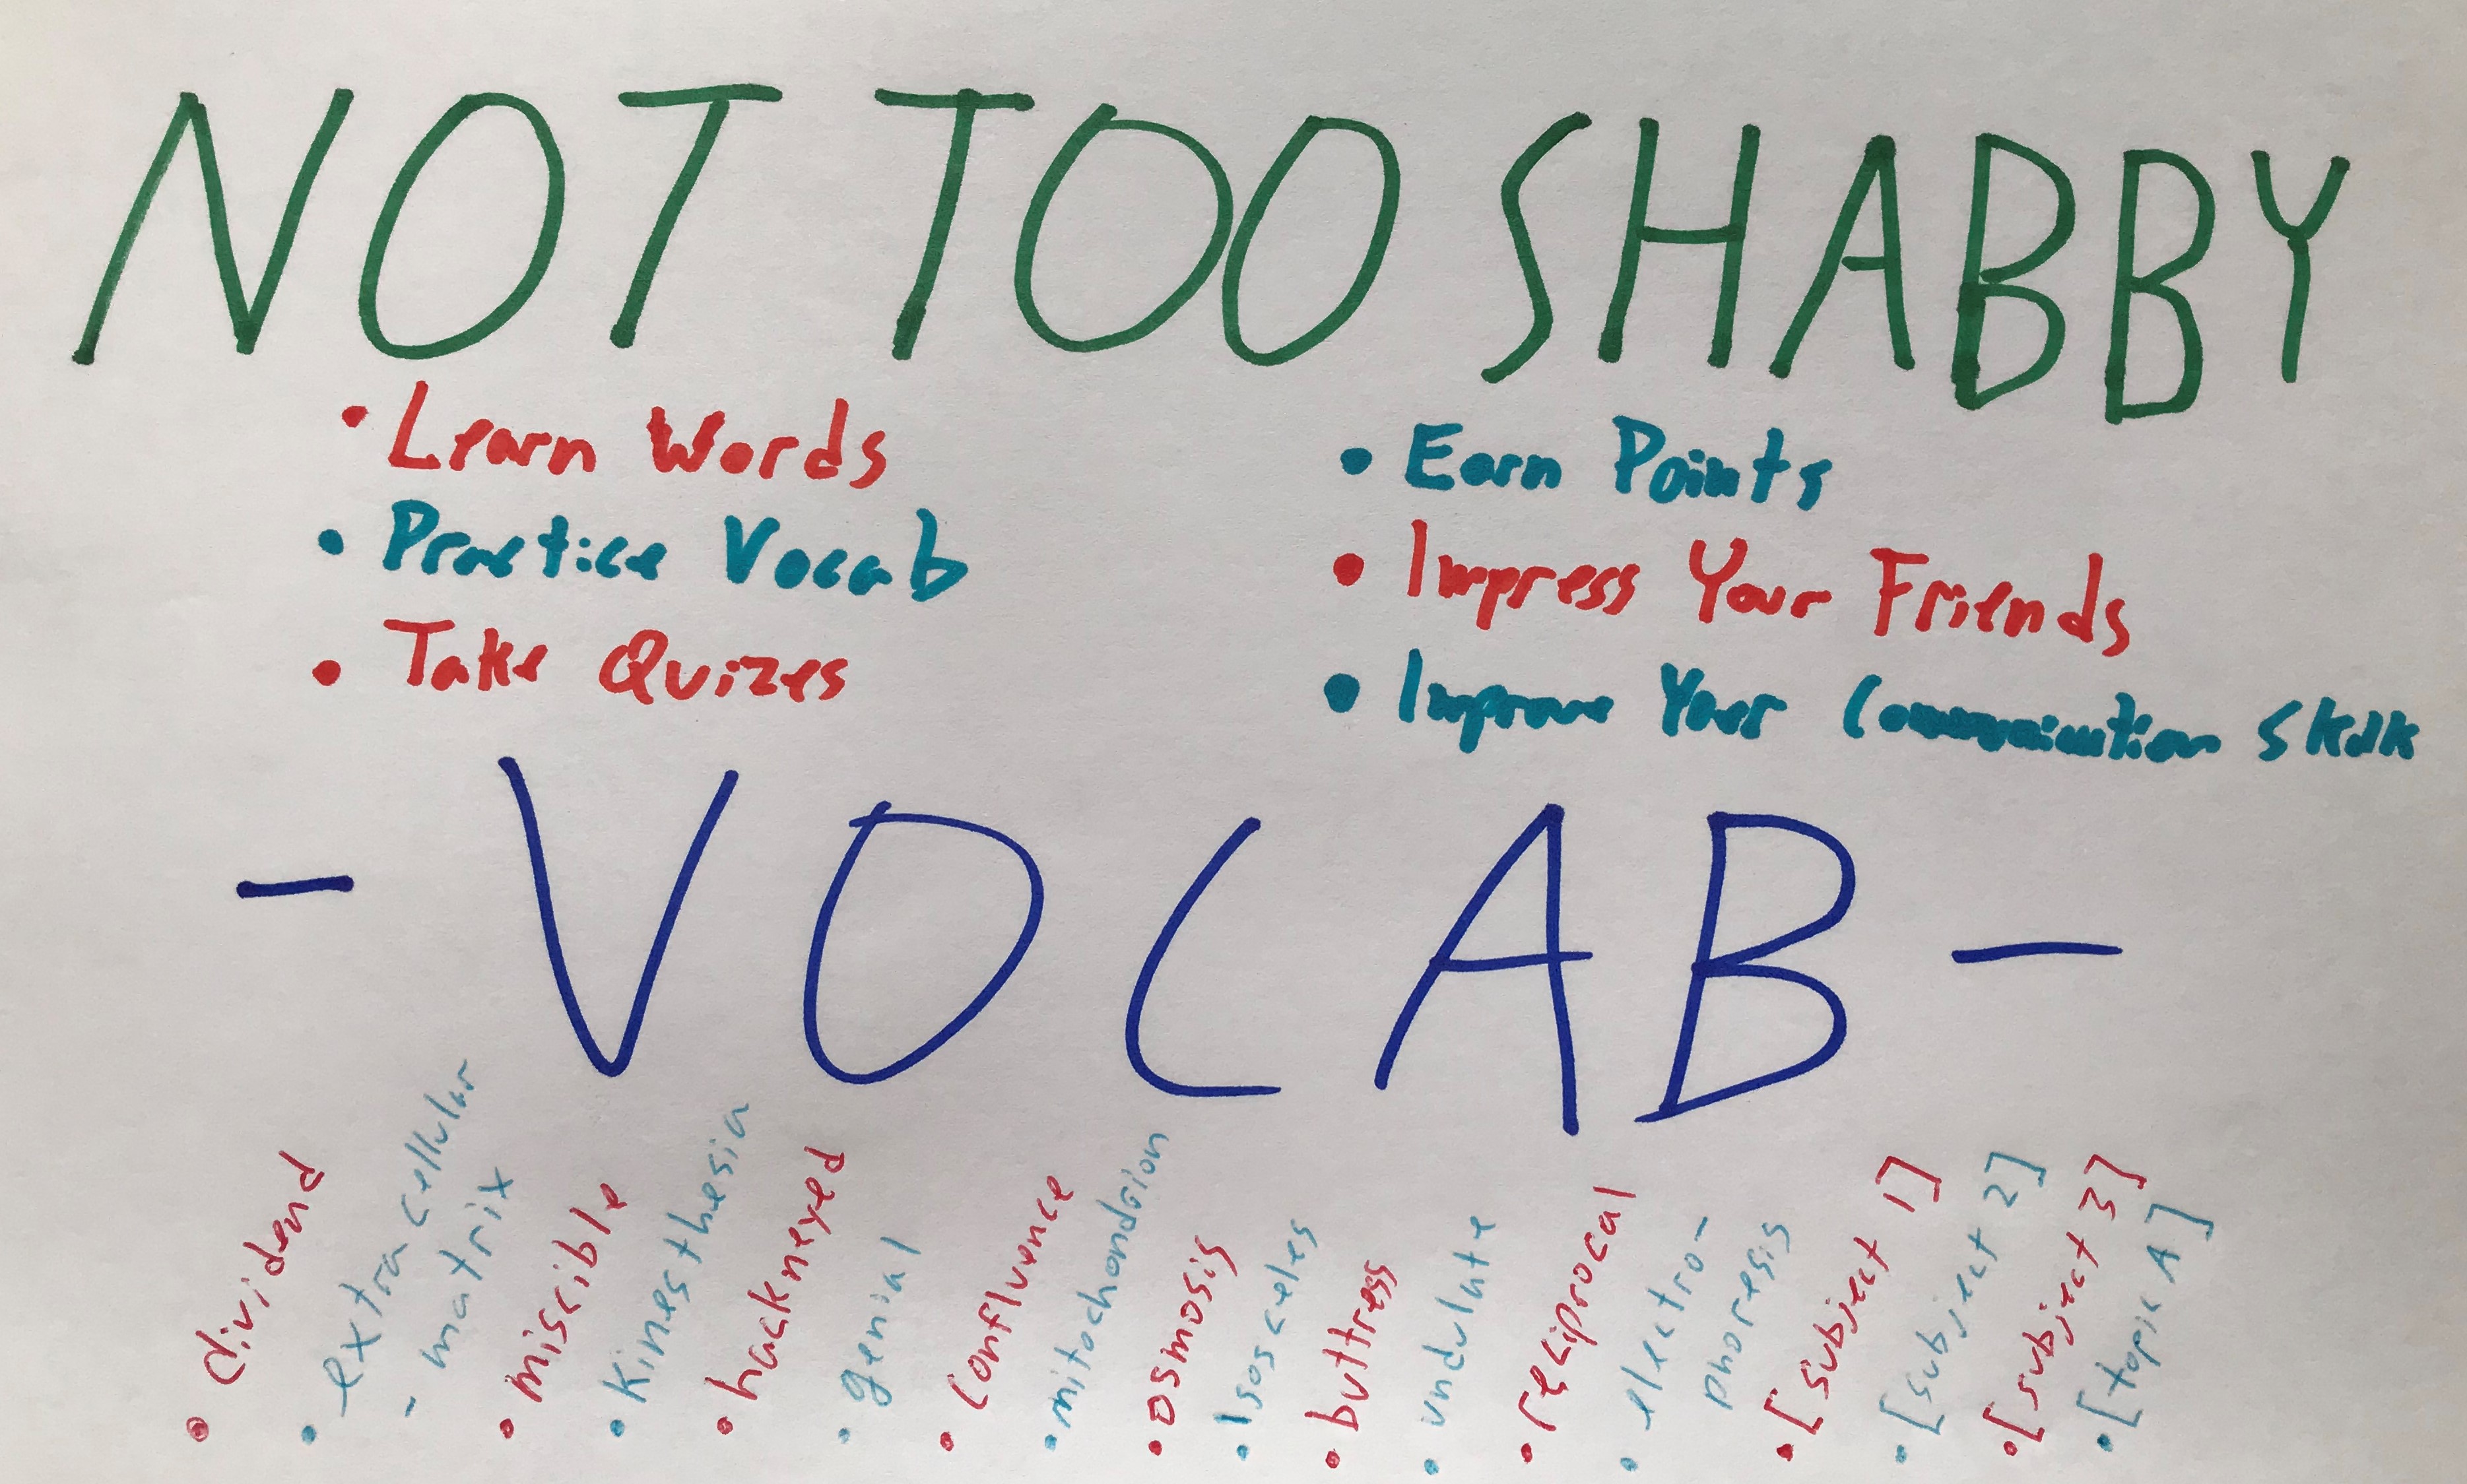 NOT TOO SHABBY
• Learn Words
• Practice Vocab
• Take Quizes
• Earn Points
• Impress Your Friends
• Improve Your Communication Skills
- VOCAB -
• dividend
• extracellular
- matrix
• miscible
• kinesthesia
• hackneyed
• genial
• confluence
• mitochondrion
• osmosis
• Isosceles
• buttress
• undulate
• reciprocal
• electro-
phoresis
• [subject 1]
• [subject 2]
• [subject 3]
• [topic A]